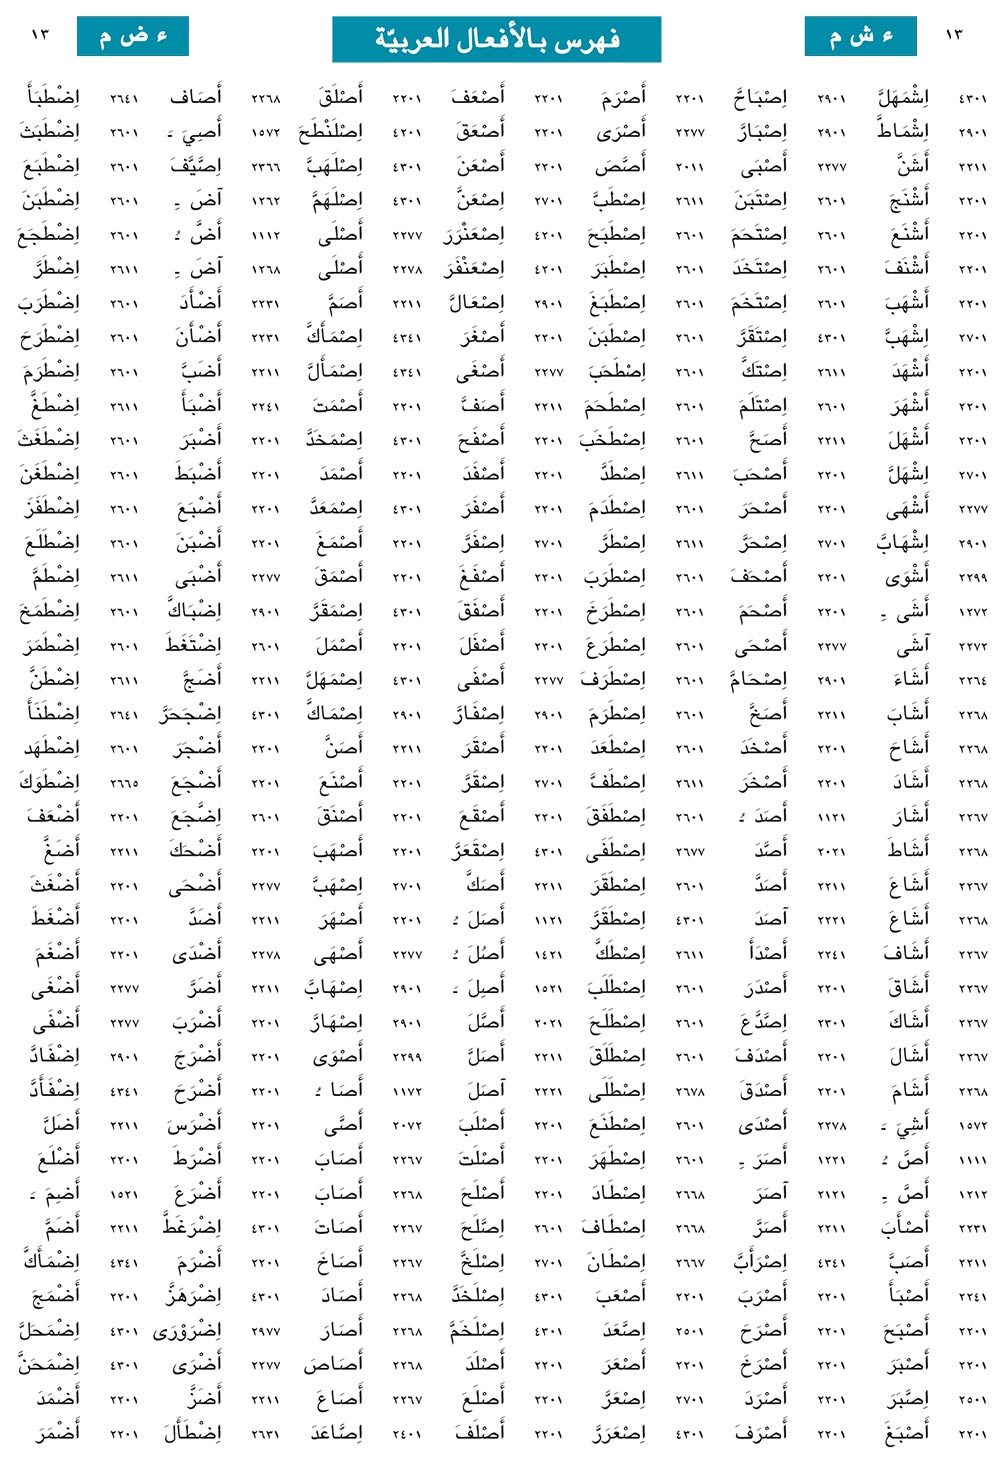 ١٣ ء ش م فهرس بالأفعال العربيّة ء ض م ١٣
٤٣٠١ اِشْمَهَلَّ ٢٩٠١ اِصْبَاحَّ ٢٢٠١ أَصْرَمَ ٢٢٠١ أَصْعَفَ ٢٢٠١ أَصْلَقَ ٢٢٦٨ أَصَاف ٢٦٤١ اِضْطَبَأَ
٢٩٠١ اِشْمَاطَّ ٢٩٠١ اِصْبَارَّ ٢٢٧٧ أَصْرَى ٢٢٠١ أَصْعَقَ ٤٢٠١ اِصْلَنْطَحَ ١٥٧٢ أَصِيَ ـَ ٢٦٠١ اِضْطَبَثَ
٢٢١١ أَشَنَّ ٢٢٧٧ أَصْبَى ٢٠١١ أَصَّصَ ٢٢٠١ أَصْعَنَ ٤٣٠١ اِصْلَهَبَّ ٢٣٦٦ اِصَّيَّفَ ٢٦٠١ اِضْطَبَعَ
٢٢٠١ أَشْنَجَ ٢٦٠١ اِصْتَبَنَ ٢٦١١ اِصْطَبَّ ٢٧٠١ اِصْعَنَّ ٤٣٠١ اِصْلَهَمَّ ١٢٦٢ آضَ ـِ ٢٦٠١ اِضْطَبَنَ
٢٢٠١ أَشْنَعَ ٢٦٠١ اِصْتَحَمَ ٢٦٠١ اِصْطَبَحَ ٤٢٠١ اِصْعَنْرَرَ ٢٢٧٧ أَصْلَى ١١١٢ أَضَّ ـُ ٢٦٠١ اِضْطَجَعَ
٢٢٠١ أَشْنَفَ ٢٦٠١ اِصْتَخَدَ ٢٦٠١ اِصْطَبَرَ ٤٢٠١ اِصْعَنْفَرَ ٢٢٧٨ أَصْلَى ١٢٦٨ آضَ ـِ ٢٦١١ اِضْطَرَّ
٢٢٠١ أَشْهَبَ ٢٦٠١ اِصْتَخَمَ ٢٦٠١ اِصْطَبَغَ ٢٩٠١ اِصْعَالَّ ٢٢١١ أَصَمَّ ٢٢٣١ أَضْأَدَ ٢٦٠١ اِضْطَرَبَ
٢٧٠١ اِشْهَبَّ ٤٣٠١ اِصْتَقَرَّ ٢٦٠١ اِصْطَبَنَ ٢٢٠١ أَصْغَرَ ٤٣٤١ اِصْمَأَكَّ ٢٢٣١ أَضْأَنَ ٢٦٠١ اِضْطَرَحَ
٢٢٠١ أَشْهَدَ ٢٦١١ اِصْتَكَّ ٢٦٠١ اِصْطَحَبَ ٢٢٧٧ أَصْغَى ٤٣٤١ اِصْمَأَلَّ ٢٢١١ أَضَبَّ ٢٦٠١ اِضْطَرَمَ
٢٢٠١ أَشْهَرَ ٢٦٠١ اِصْتَلَمَ ٢٦٠١ اِصْطَحَمَ ٢٢١١ أَصَفَّ ٢٢٠١ أَصْمَتَ ٢٢٤١ أَضْبَأَ ٢٦١١ اِضْطَغَّ
٢٢٠١ أَشْهَلَ ٢٢١١ أَصَحَّ ٢٦٠١ اِصْطَخَبَ ٢٢٠١ أَصْفَحَ ٤٣٠١ اِصْمَخَدَّ ٢٢٠١ أَضْبَرَ ٢٦٠١ اِضْطَغَثَ
٢٧٠١ اِشْهَلَّ ٢٢٠١ أَصْحَبَ ٢٦١١ اِصْطَدَّ ٢٢٠١ أَصْفَدَ ٢٢٠١ أَصْمَدَ ٢٢٠١ أَضْبَطَ ٢٦٠١ اِضْطَغَنَ
٢٢٧٧ أَشْهَى ٢٢٠١ أَصْحَرَ ٢٦٠١ اِصْطَدَمَ ٢٢٠١ أَصْفَرَ ٤٣٠١ اِصْمَعَدَّ ٢٢٠١ أَضْبَعَ ٢٦٠١ اِضْطَفَزَ
٢٩٠١ اِشْهَابَّ ٢٧٠١ اِصْحَرَّ ٢٦١١ اِصْطَرَّ ٢٧٠١ اِصْفَرَّ ٢٢٠١ أَصْمَغَ ٢٢٠١ أَضْبَنَ ٢٦٠١ اِضْطَلَعَ
٢٢٩٩ أَشْوَى ٢٢٠١ أَصْحَفَ ٢٦٠١ اِصْطَرَبَ ٢٢٠١ أَصْفَغَ ٢٢٠١ أَصْمَقَ ٢٢٧٧ أَضْبَى ٢٦١١ اِضْطَمَّ
١٢٧٢ أَشَى ـِ ٢٢٠١ أَصْحَمَ ٢٦٠١ اِصْطَرَخَ ٢٢٠١ أَصْفَقَ ٤٣٠١ اِصْمَقَرَّ ٢٩٠١ اِضْبَاكَّ ٢٦٠١ اِضْطَمَخَ
٢٢٧٢ آشَى ٢٢٧٧ أَصْحَى ٢٦٠١ اِصْطَرَعَ ٢٢٠١ أَصْفَلَ ٢٢٠١ أَصْمَلَ ٢٦٠١ اِضْتَغَطَ ٢٦٠١ اِضْطَمَرَ
٢٢٦٤ أَشَاءَ ٢٩٠١ اِصْحَامَّ ٢٦٠١ اِصْطَرَفَ ٢٢٧٧ أَصْفَى ٤٣٠١ اِصْمَهَلَّ ٢٢١١ أَضَجَّ ٢٦١١ اِضْطَنَّ
٢٢٦٨ أَشَابَ ٢٢١١ أَصَخَّ ٢٦٠١ اِصْطَرَمَ ٢٩٠١ اِصْفَارَّ ٢٩٠١ اِصْمَاكَّ ٤٣٠١ اِضْجَحَرَّ ٢٦٤١ اِضْطَنَأَ
٢٢٦٨ أَشَاحَ ٢٢٠١ أَصْخَدَ ٢٦٠١ اِصْطَعَدَ ٢٢٠١ أَصْقَرَ ٢٢١١ أَصَنَّ ٢٢٠١ أَضْجَرَ ٢٦٠١ اِضْطَهَد
٢٢٦٨ أَشَادَ ٢٢٠١ أَصْخَرَ ٢٦١١ اِصْطَفَّ ٢٧٠١ اِصْقَرَّ ٢٢٠١ أَصْنَعَ ٢٢٠١ أَضْجَعَ ٢٦٦٥ اِضْطَوَكَ
٢٢٦٧ أَشَارَ ١١٢١ أَصَدَ ـُ ٢٦٠١ اِصْطَفَقَ ٢٢٠١ أَصْقَعَ ٢٢٠١ أَصْنَقَ ٢٦٠١ اِضَّجَعَ ٢٢٠١ أَضْعَفَ
٢٢٦٨ أَشَاطَ ٢٠٢١ أَصَّدَ ٢٦٧٧ اِصْطَفَى ٤٣٠١ اِصْقَعَرَّ ٢٢٠١ أَصْهَبَ ٢٢٠١ أَضْحَكَ ٢٢١١ أَضَغَّ
٢٢٦٧ أَشَاعَ ٢٢١١ أَصَدَّ ٢٦٠١ اِصْطَقَرَ ٢٢١١ أَصَكَّ ٢٧٠١ اِصْهَبَّ ٢٢٧٧ أَضْحَى ٢٢٠١ أَضْغَثَ
٢٢٦٨ أَشَاعَ ٢٢٢١ آصَدَ ٤٣٠١ اِصْطَقَرَّ ١١٢١ أَصَلَ ـُ ٢٢٠١ أَصْهَرَ ٢٢١١ أَضَدَّ ٢٢٠١ أَضْغَطَ
٢٢٦٧ أَشَافَ ٢٢٤١ أَصْدَأَ ٢٦١١ اِصْطَكَّ ١٤٢١ أَصُلَ ـُ ٢٢٧٧ أَصْهَى ٢٢٧٨ أَضْدَى ٢٢٠١ أَضْغَمَ
٢٢٦٧ أَشَاقَ ٢٢٠١ أَصْدَرَ ٢٦٠١ اِصْطَلَبَ ١٥٢١ أَصِلَ ـَ ٢٩٠١ اِصْهَابَّ ٢٢١١ أَضَرَّ ٢٢٧٧ أَضْغَى
٢٢٦٧ أَشَاكَ ٢٣٠١ اِصَّدَّعَ ٢٦٠١ اِصْطَلَحَ ٢٠٢١ أَصَّلَ ٢٩٠١ اِصْهَارَّ ٢٢٠١ أَضْرَبَ ٢٢٧٧ أَضْفَى
٢٢٦٧ أَشَالَ ٢٢٠١ أَصْدَفَ ٢٦٠١ اِصْطَلَقَ ٢٢١١ أَصَلَّ ٢٢٩٩ أَصْوَى ٢٢٠١ أَضْرَجَ ٢٩٠١ اِضْفَادَّ
٢٢٦٨ أَشَامَ ٢٢٠١ أَصْدَقَ ٢٦٧٨ اِصْطَلَى ٢٢٢١ آصَلَ ١١٧٢ أَصَا ـُ ٢٢٠١ أَضْرَحَ ٤٣٤١ اِضْفَأَدَّ
١٥٧٢ أَشِيَ ـَ ٢٢٧٨ أَصْدَى ٢٦٠١ اِصْطَنَعَ ٢٢٠١ أَصْلَبَ ٢٠٧٢ أَصَّى ٢٢٠١ أَضْرَسَ ٢٢١١ أَضَلَّ
١١١١ أَصَّ ـُ ١٢٢١ أَصَرَ ـِ ٢٦٠١ اِصْطَهَرَ ٢٢٠١ أَصْلَتَ ٢٢٦٧ أَصَابَ ٢٢٠١ أَضْرَطَ ٢٢٠١ أَضْلَعَ
١٢١٢ أَصَّ ـِ ٢١٢١ آصَرَ ٢٦٦٨ اِصْطَادَ ٢٢٠١ أَصْلَحَ ٢٢٦٨ أَصَابَ ٢٢٠١ أَضْرَعَ ١٥٢١ أَضِمَ ـَ
٢٢٣١ أَصْأَبَ ٢٢١١ أَصَرَّ ٢٦٦٨ اِصْطَافَ ٢٦٠١ اِصَّلَحَ ٢٢٦٧ أَصَاتَ ٤٣٠١ اِضْرَغَطَّ ٢٢١١ أَضَمَّ
٢٢١١ أَصَبَّ ٤٣٤١ اِصْرَأَبَّ ٢٦٦٧ اِصْطَانَ ٢٧٠١ اِصْلَخَّ ٢٢٦٧ أَصَاخَ ٢٢٠١ أَضْرَمَ ٤٣٤١ اِضْمَأَكَّ
٢٢٤١ أَصْبَأَ ٢٢٠١ أَصْرَبَ ٢٢٠١ أَصْعَبَ ٤٣٠١ اِصْلَخَدَّ ٢٢٦٨ أَصَادَ ٤٣٠١ اِضْرَهَزَّ ٢٢٠١ أَضْمَجَ
٢٢٠١ أَصْبَحَ ٢٢٠١ أَصْرَحَ ٢٥٠١ اِصَّعَدَ ٤٣٠١ اِصْلَخَمَّ ٢٢٦٨ أَصَارَ ٢٩٧٧ اِضْرَوْرَى ٤٣٠١ اِضْمَحَلَّ
٢٢٠١ أَصْبَرَ ٢٢٠١ أَصْرَخَ ٢٢٠١ أَصْعَرَ ٢٢٠١ أَصْلَدَ ٢٢٦٨ أَصَاصَ ٢٢٧٧ أَضْرَى ٤٣٠١ اِضْمَحَنَّ
٢٥٠١ اِصَّبَرَ ٢٢٠١ أَصْرَدَ ٢٧٠١ اِصْعَرَّ ٢٢٠١ أَصْلَعَ ٢٢٦٧ أَصَاعَ ٢٢١١ أَضَزَّ ٢٢٠١ أَضْمَدَ
٢٢٠١ أَصْبَغَ ٢٢٠١ أَصْرَفَ ٤٣٠١ اِصْعَرَرَّ ٢٢٠١ أَصْلَفَ ٢٤٠١ اِصَّاعَدَ ٢٦٣١ اِضْطَأَلَ ٢٢٠١ أَضْمَرَ